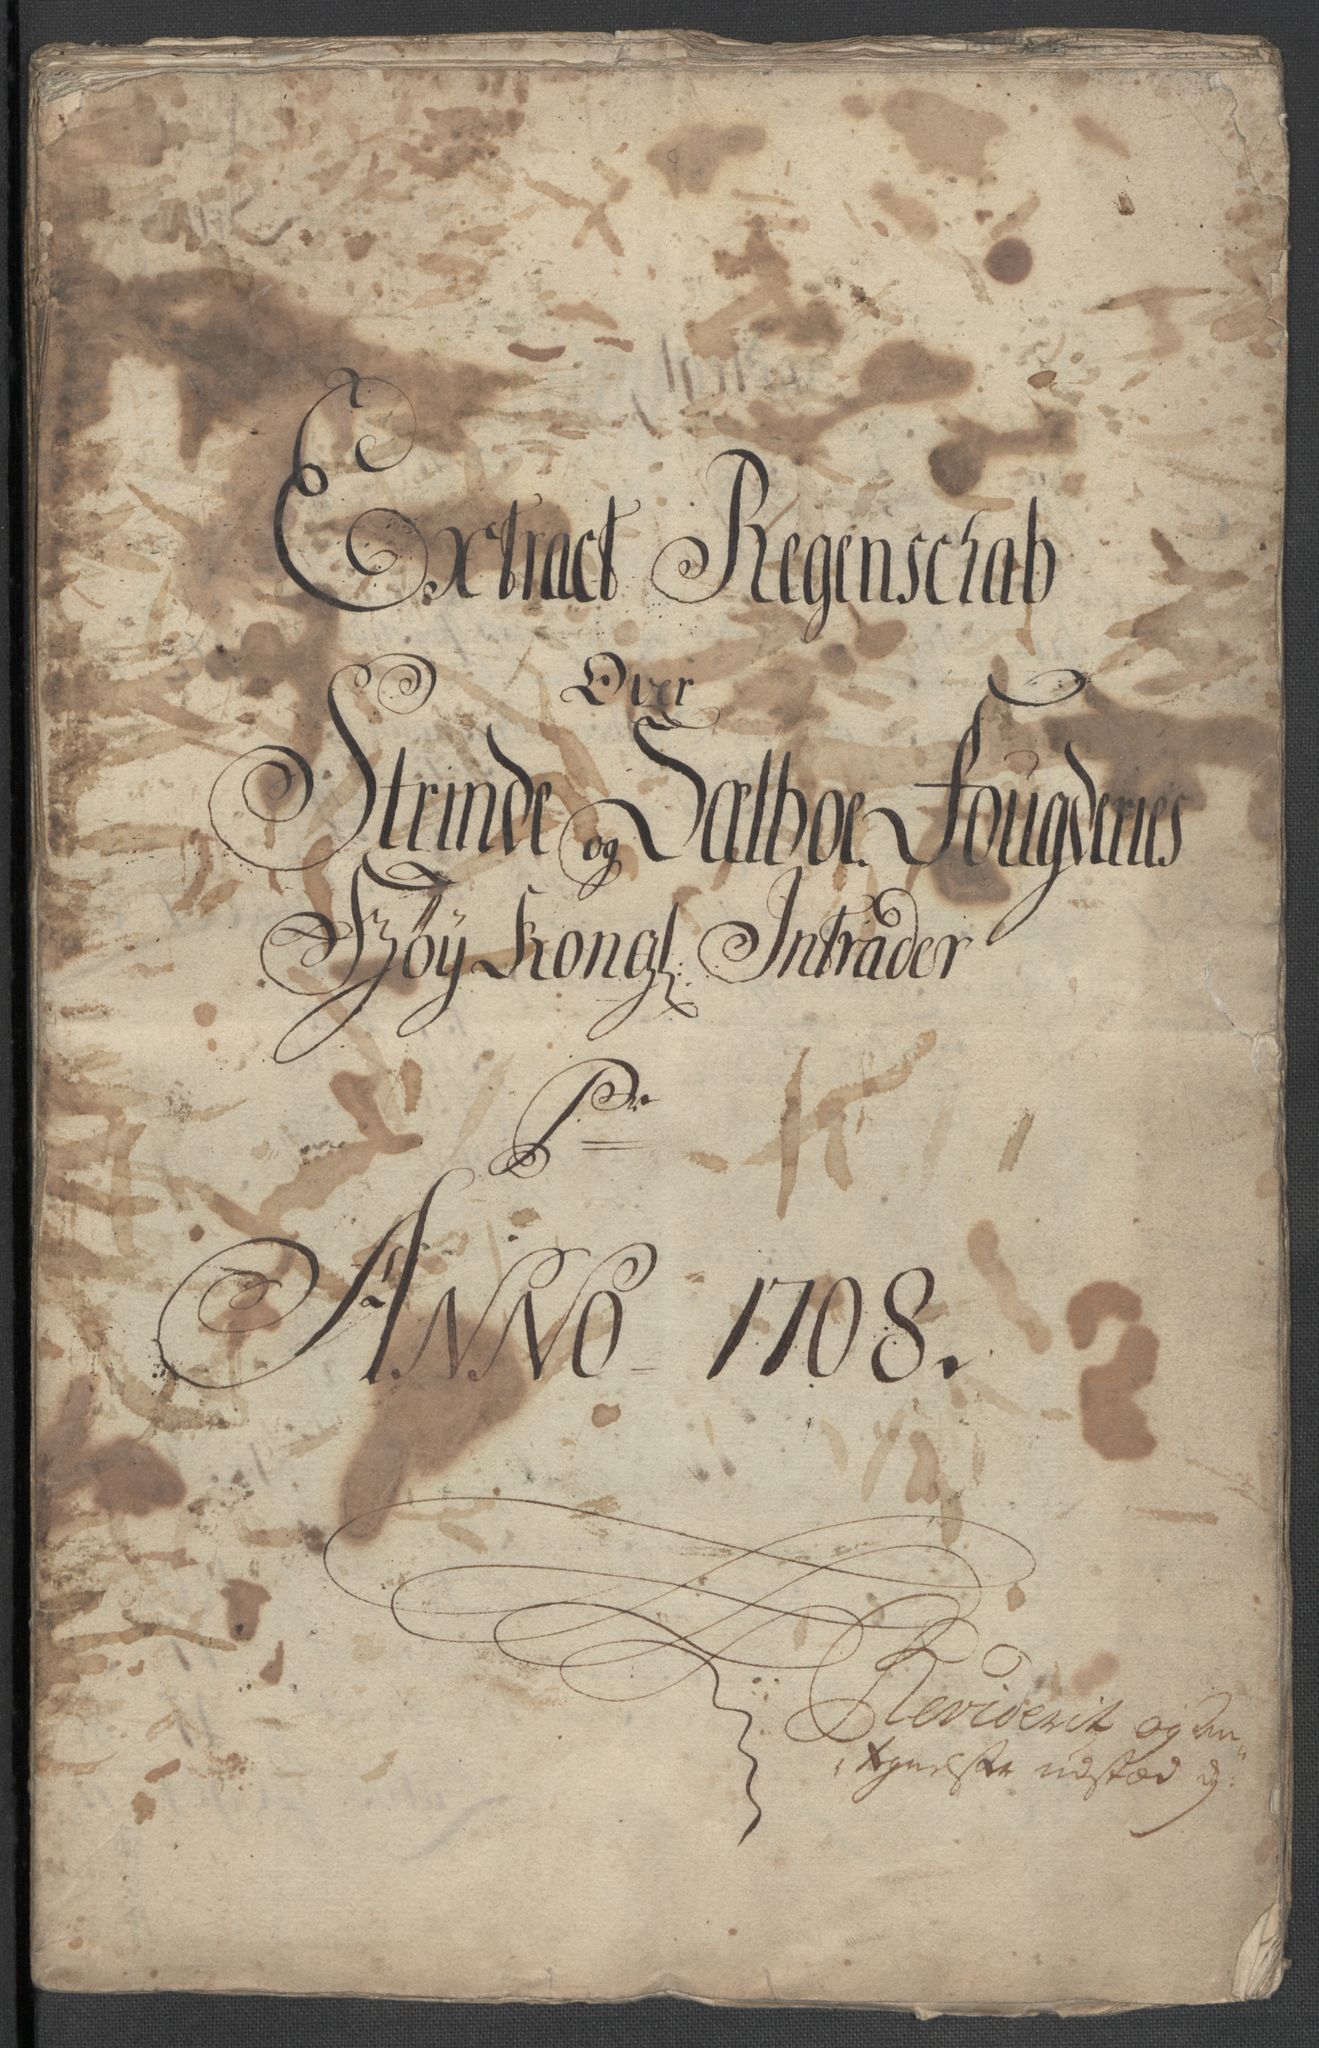 Extract Regenschab
Over
Strinde og Sælboe Fougderies
Høy Kongl: Intrader
Pr
ANNO 1708.
Reviderit og An-
udstæd